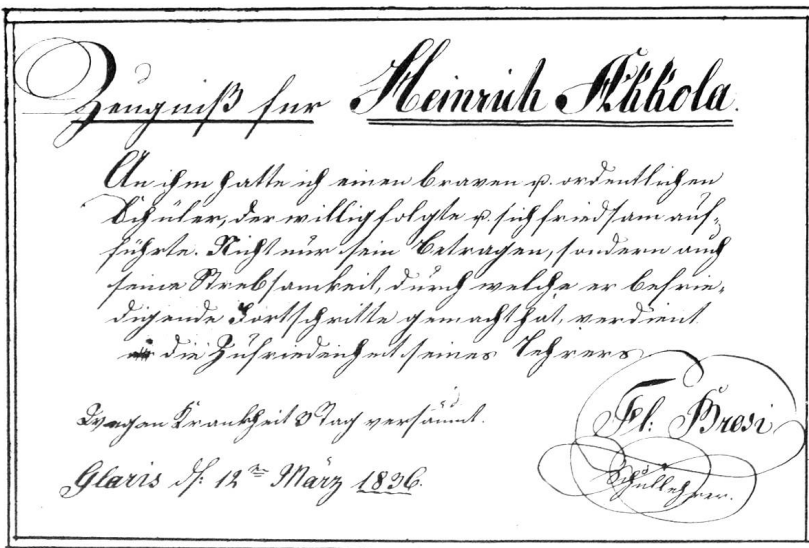 Zeugniß für Heinrich Akkola.
An ihm hatte ich einen braven u. ordentlichen
Schüler, der willig folgte u. sich friedsam auf-
führte. Nicht nur sein Betragen, sondern auch
seine Strebsamkeit, durch welche er befrie-
digende Fortschritte gemacht hat, verdient
die Zufriedenheit seines Lehrers
Wegen Krankheit 3 Tag versäumt.
Glaris d. 12 März 1836.
Schullehrer.